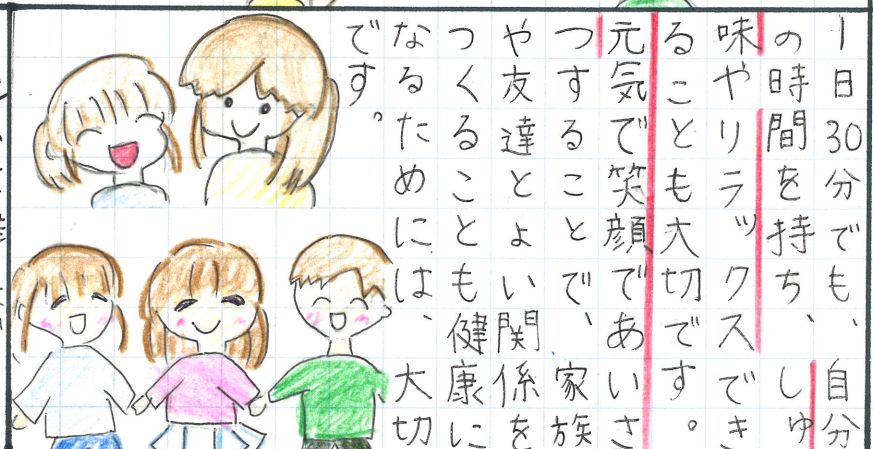 1日30分でも、自分
の時間を持ち、しゅ
味やリラックスでき
ることも大切です。
元気で笑顔であいさ
つすることで、家族
や友達とよい関係を
つくることも健康に
なるためには、大切
です。